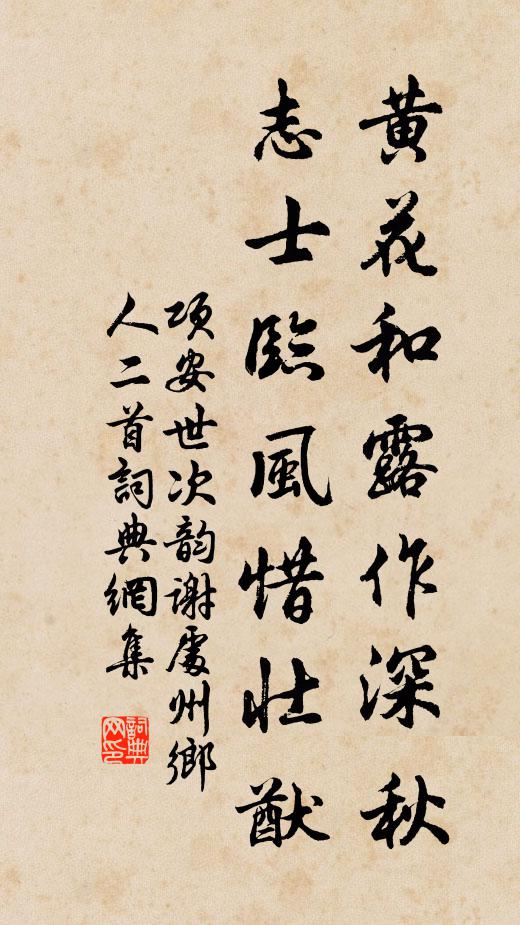 黄花和露作深秋
志士臨風惜壯猷
項安世次韵謝處州鄉
人二首詞典網集
詞典
网印